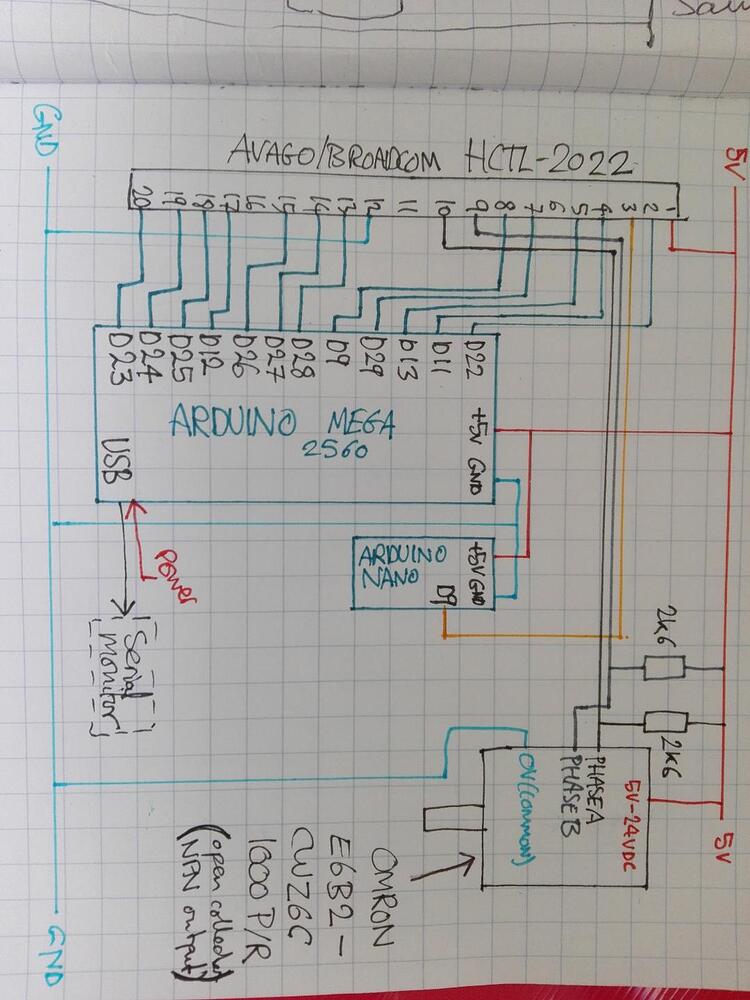 5V
GND
AVAGO/BROADCOM HCTL-2022
20 19 18 17 16 15 14 13 12 11 10 9 8 7 6 5 4 3 2 1
D23 D24 D25 D12 D26 D27 D28 D9 D29 D13 D11 D22
ARDUINO MEGA
2560
+5V GND
USB
Power
Serial
Monitor
ARDUINO
NANO
+5V GND
D9
2K6
2K6
5V-24VDC
PHASE A
PHASE B
0V (COMMON)
OMRON
E6B2-
CWZ6C
1000 P/R
(open collector
NPN output)
5V
GND